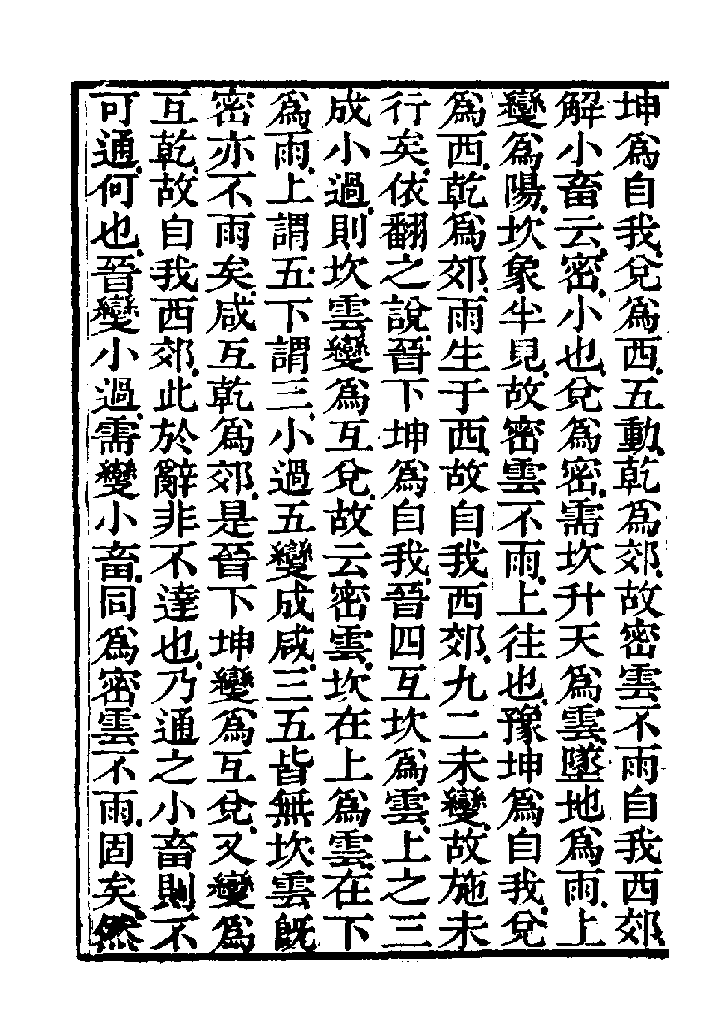 坤爲自我兌爲西五動乾爲郊故密雲不雨自我西郊
解小畜云密小也兌爲密需坎升天爲雲墜地爲雨上
變爲陽坎象半見故密雲不雨上往也豫坤爲自我兌
爲西乾爲郊雨生于西故自我西郊九二未變故施未
行矣依翻之說晉下坤爲自我晉四互坎爲雲上之三
成小過則坎雲變爲互兌故云密雲坎在上爲雲在下
爲雨上謂五下謂三小過五變成咸三五皆無坎雲旣
密亦不雨矣咸互乾爲郊是晉下坤變爲互兌又變爲
互乾故自我西郊此於辭非不達也乃通之小畜則不
可通何也晉變小過需變小畜同爲密雲不雨固矣然